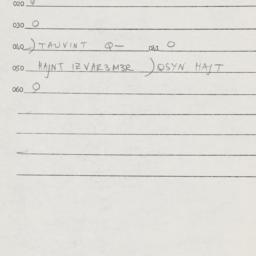 020
030 0
040 ) TAUVINT Q— 041 0
050 HAJNT IZVAR3M3R ) OSYN HAJT
060 0